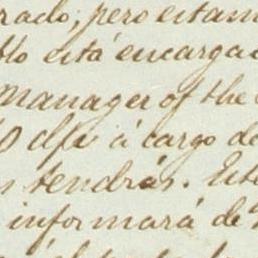 rado; pero estam
llo está encargad
Manager of the
á cargo de
tendrás. Est
informará de